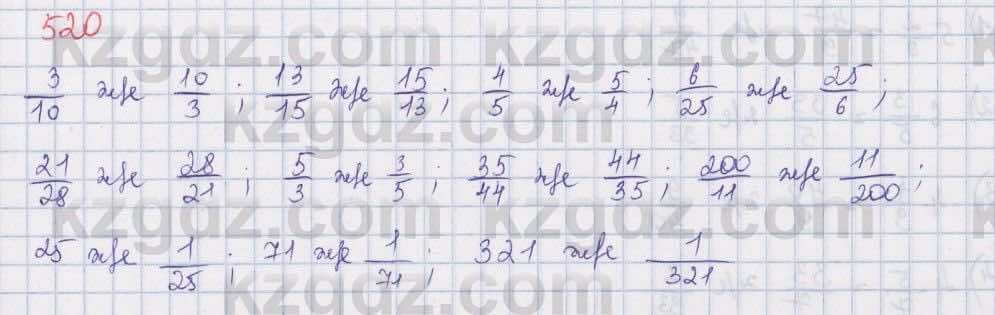 520
3/10 және 10/3; 13/15 және 15/13; 4/5 және 5/4; 6/25 және 25/6;
21/28 және 28/21; 5/3 және 3/5; 35/44 және 44/35; 200/11 және 11/200;
25 және 1/25; 71 және 1/71; 321 және 1/321
kzgdz.com kzgdz.com
kzgdz.com
kzgdz.com kzgdz.com
kzgdz.com